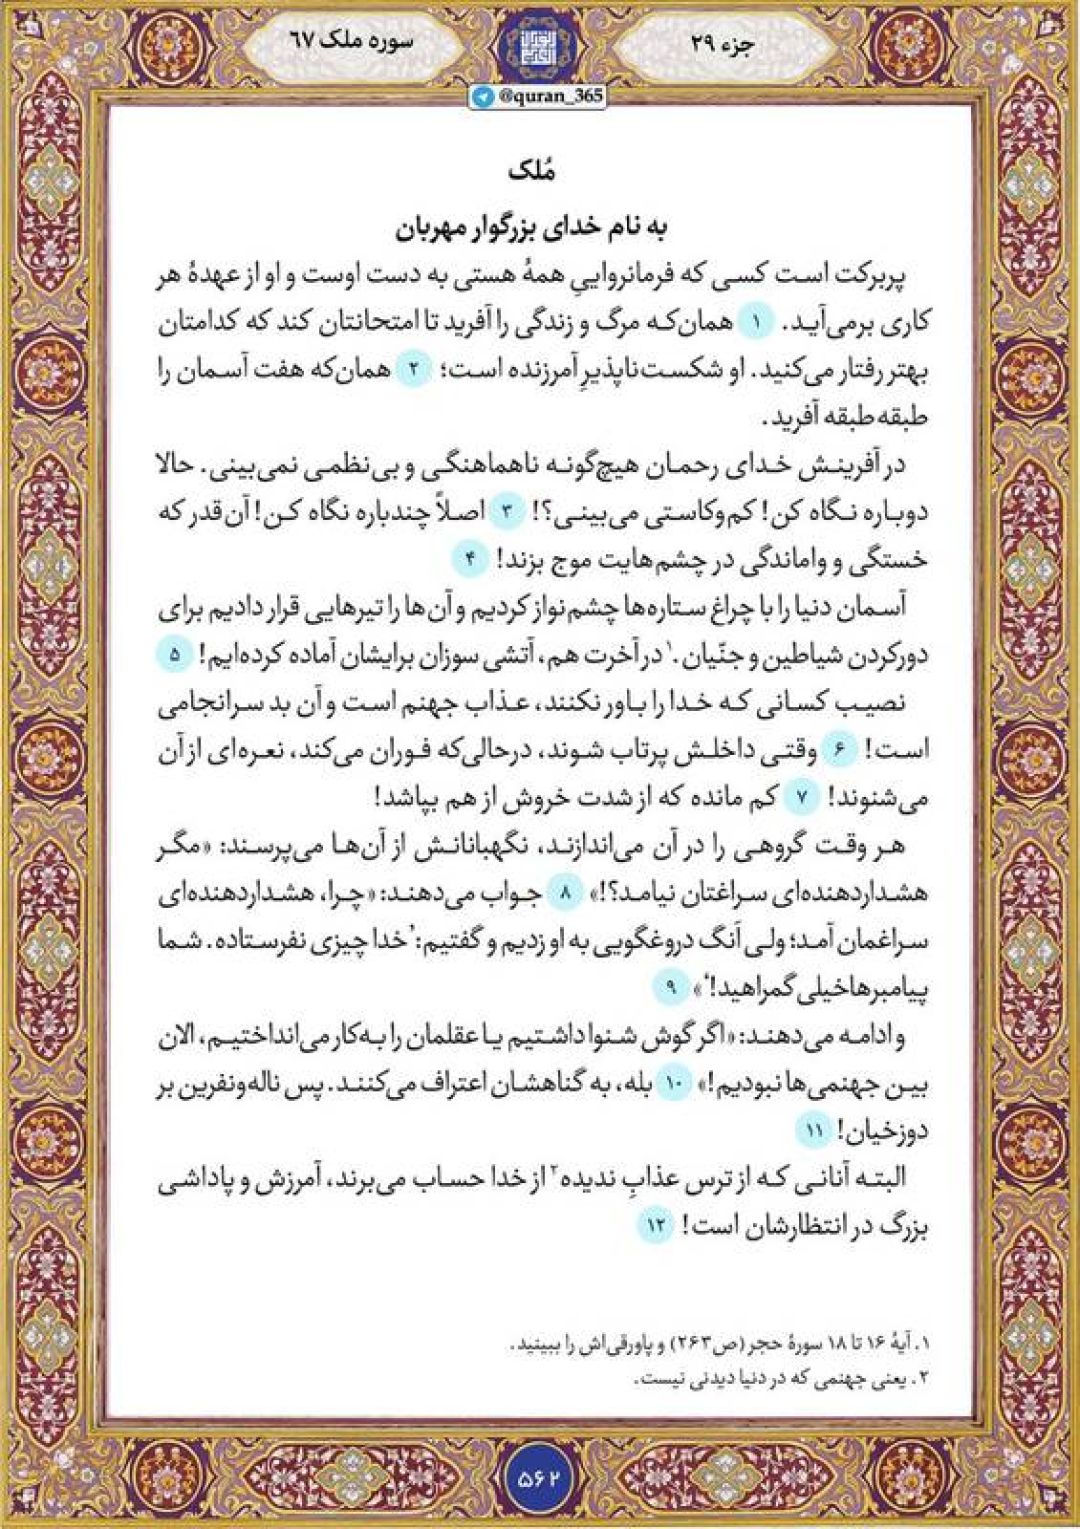 جزء ۲۹
سوره ملک ۶۷
@quran_365
مُلک
به نام خدای بزرگوار مهربان
پربرکت است کسی که فرمانرواییِ همهٔ هستی به دست اوست و او از عهدهٔ هر
کاری برمی‌آید. ۱ همان‌که مرگ و زندگی را آفرید تا امتحانتان کند که کدامتان
بهتر رفتار می‌کنید. او شکست‌ناپذیرِ آمرزنده است؛ ۲ همان‌که هفت آسمان را
طبقه‌طبقه آفرید.
در آفرینش خدای رحمان هیچ‌گونه ناهماهنگی و بی‌نظمی نمی‌بینی. حالا
دوباره نگاه کن! کم‌وکاستی می‌بینی؟! ۳ اصلاً چندباره نگاه کن! آن‌قدر که
خستگی و واماندگی در چشم‌هایت موج بزند! ۴
آسمان دنیا را با چراغ ستاره‌ها چشم‌نواز کردیم و آن‌ها را تیرهایی قرار دادیم برای
دورکردن شیاطین و جنّیان.۱ در آخرت هم، آتشی سوزان برایشان آماده کرده‌ایم! ۵
نصیب کسانی که خدا را باور نکنند، عذاب جهنم است و آن بد سرانجامی
است! ۶ وقتی داخلش پرتاب شوند، درحالی‌که فوران می‌کند، نعره‌ای از آن
می‌شنوند! ۷ کم مانده که از شدت خروش از هم بپاشد!
هر وقت گروهی را در آن می‌اندازند، نگهبانانش از آن‌ها می‌پرسند: «مگر
هشداردهنده‌ای سراغتان نیامد؟!» ۸ جواب می‌دهند: «چرا، هشداردهنده‌ای
سراغمان آمد؛ ولی اَنگ دروغگویی به او زدیم و گفتیم: ‘خدا چیزی نفرستاده. شما
پیامبرها خیلی گمراهید!’» ۹
و ادامه می‌دهند: «اگر گوش شنوا داشتیم یا عقلمان را به‌کار می‌انداختیم، الان
بین جهنمی‌ها نبودیم!» ۱۰ بله، به گناهشان اعتراف می‌کنند. پس ناله‌ونفرین بر
دوزخیان! ۱۱
البته آنانی که از ترس عذابِ ندیده۲ از خدا حساب می‌برند، آمرزش و پاداشی
بزرگ در انتظارشان است! ۱۲
۱. آیهٔ ۱۶ تا ۱۸ سورهٔ حجر (ص۲۶۳) و پاورقی‌اش را ببینید.
۲. یعنی جهنمی که در دنیا دیدنی نیست.
۵۶۲